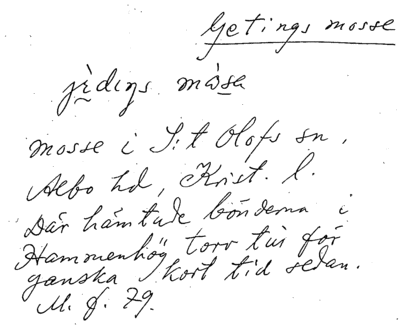 Getings mosse
mosse i S:t Olofs sn,
Albo hd, Krist. l.
Där hämtade bönderna i
Hammenhög torv tills för
ganska kort tid sedan.
M. f. 79.